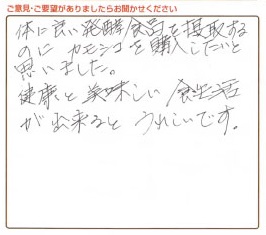 ご意見・ご要望がありましたらお聞かせください
体に良い発酵食品を摂取する
のに カモシコを購入したいと
思いました。
健康と美味しい 食生活
が出来ると うれしいです。